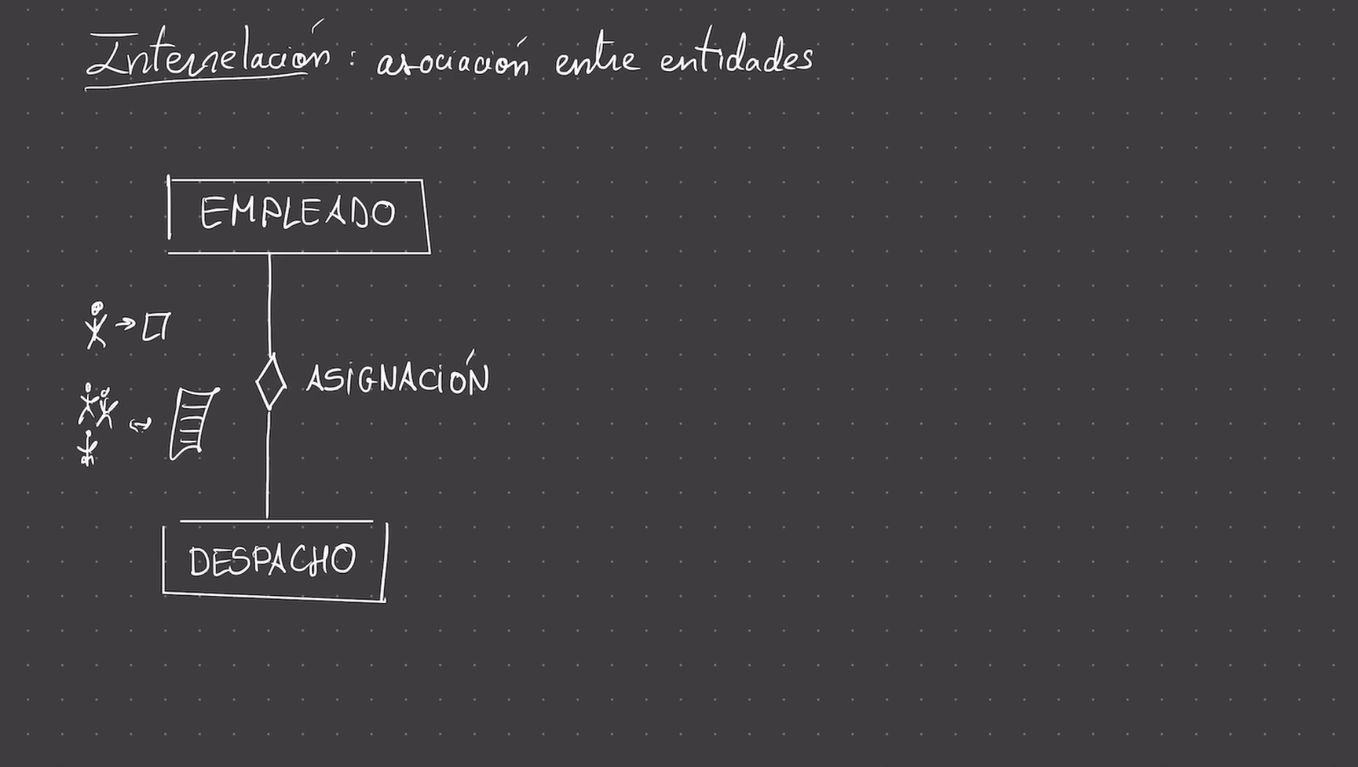 Interrelación: asociación entre entidades
EMPLEADO
ASIGNACIÓN
DESPACHO